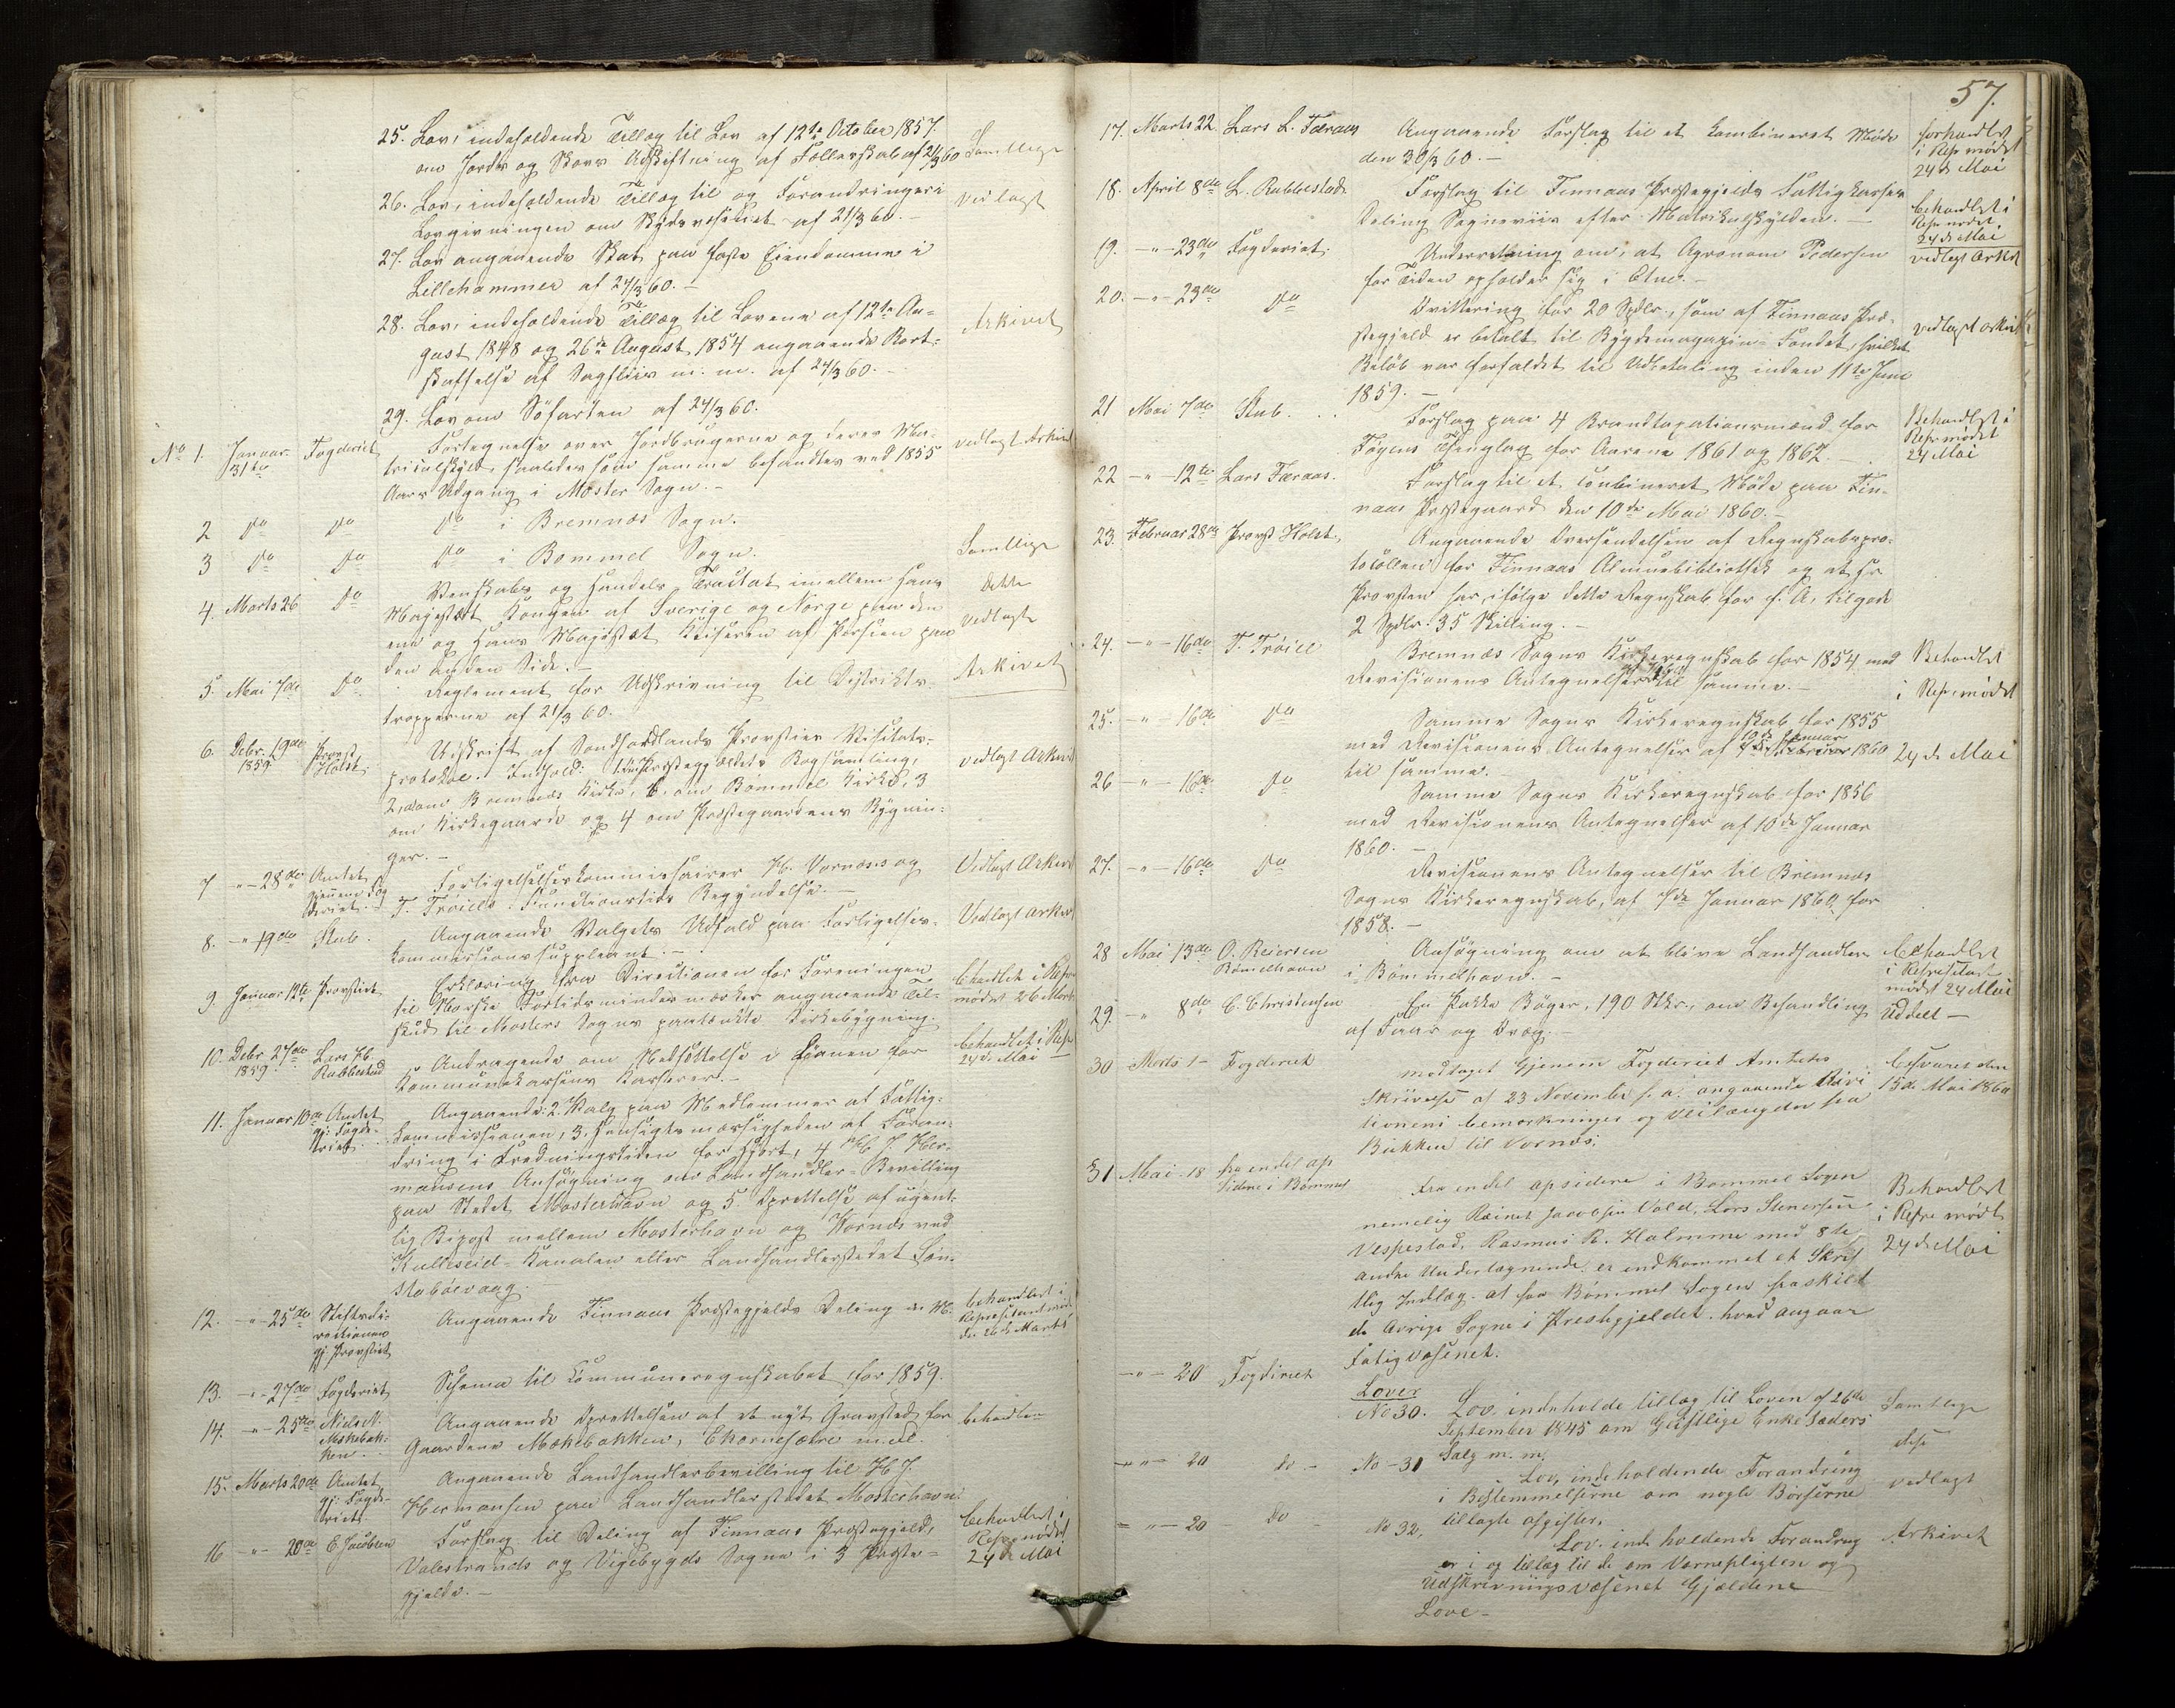 25. Lov, indeholdende Tillæg til Lov af 12te October 1857.
om Jords og Skovs Udskiftning af Fællesskab af 21/3 60
Samtlige
26. Lov, indeholdende Tillæg til og Forandringer i
Lovgivningen om Skydsvæsenet af 21/3 60.-
vedlagt
27. Lov angaaende Skat paa faste Eiendomme i
Lillehammer af 24/3 60.-
28. Lov, indeholdende Tillæg til Lovene af 12te Au-
gust 1848 og 26de August 1854 angaaende Bort-
skaffelse af Sagfliis m. m. af 24/3 60.-
Arkivet
29. Lov om Söfarten af 24/3 60.
No 1. Januar 31te Fogderiet
Fortegnelse over Jordbrugerne og deres Ma-
trikulskyld, saaledes som samme befandtes ved 1855
Aars Udgang i Moster Sogn.-
vedlagt Arkivet
2 Do Do Do i Bremnæs Sogn.
3 Do Do Do i Bømmel Sogn.
Samtlige
4. Marts 26 Do Venskabs og Handels Tractat imellem Hans
Majestæt Kongen af Sverige og Norge paa den
ene og Hans Majestæt Keiseren af Persien paa
den anden Side.-
dette
vedlagte
5. Mai 7de Do Reglement for Udskrivning til Distrikts-
tropperne af 21/3 60.
Arkivet
6. Debr. 19de 1859 Provst Holst
Udskrift af Søndhordlands Provsties Visitats-
protokol. Indhold: 1, om Præstegjeldets Bogsamling,
2, a, om Bremnæs Kirke, b, om Bømmel Kirke, 3
om Kirkegaarde og 4 om Præstegaardens Bygnin-
ger.-
vedlagt Arkivet
7 -"- 28de Amtet gjennem Fogderiet.
Forligelseskommissairer H. Vornæs og
T. Trøiels Functionstids Begyndelse.-
Vedlagt Arkivet
8. -"- 19de Stub.
Angaaende Valgets Udfald paa Forligelses-
kommissionssuppleant.-
Vedlagt Arkivet
9. Januar 12te Provstiet
Erklæring fra Directionen for Foreningen
til Norske Fortidsmindesmærker angaaende Til-
skud til Mosters Sogns paatænkte Kirkebygning.
behandlet i Repr
mødet 26 Marts
10. Debr. 27de 1859 Lars H. Rubbestad
Andragende om Nedsættelse i Lønnen for
Kommunekassens Kasserer.-
behandlet i Repr
24de Mai
11. Januar 10de Amtet gj: Fogderiet
Angaaende: 2. Valg paa Medlemmer af Fattig-
kommissionen, 3. Hensigtsmæssigheden af Foran-
dring i Fredningstiden for Hjort, 4 H. J. Her-
mansens Ansøgning om Landhandler-Bevilling
paa Stedet Mosterhavn og 5 Oprettelse af ugent-
lig Bipost mellem Mosterhavn og Vornæs ved
Kulleseid-Kanalen eller Landhandlerstedet Løn-
stabøevaag.
12. -"- 25de Stiftsdi-
rectionen gj. Provstiet
Angaaende Finnaas Præstegjelds Deling m. M.
behandlet i
Representantmøde
den 26de Marts
13. -"- 27de Fogderiet
Schema til Kommuneregnskabet for 1859.
14. -"- 25de Niels N. Mækebak-
ken
Angaaende Oprettelsen af et nyt Gravsted for
Gaardene Mækebakken, Ekornesætre m. fl.
behandlet
15. Marts 20de Amtet gj: Fogde-
riet.
Angaaende Landhandlerbevilling til H. J.
Hermansen paa Landhandlerstedet Mosterhavn.
16 -"- 20de E. Jacobsen
Forslag til Deling af Finnaas Præstegjeld,
Valestrands og Vigebygds Sogne i 3 Præste-
gjelde.-
behandlet i
Repr mødet
24de Mai
57.
17. Marts 22. Lars L. Færaas Angaaende Forslag til et kombineret Møde
den 30/3 60.-
forhandlet
i Repr mødet
24de Mai
18. April 8de L. Rubbestad Forslag til Finnaas Præstegjelds Fattigkasses
Deling Sogneviis efter Matrikulskylden.-
behandlet i
Repr mødet
24de Mai
19. -"- 23de Fogderiet. Underretning om, at Agronom Pedersen
for Tiden opholder sig i Etne.-
vedlagt Arkiv
20. -"- 23de Do Qvittering for 20 Spdlr., som af Finnaas Præ-
stegjeld er betalt til Bygdemagazin-Fondet, hvilket
Beløb var forfaldet til Udbetaling inden 11te Juni
1859.-
vedlagt arkiv
21 Mai 7de Stub. Forslag paa 4 Brandtaxationsmænd for
Føyens Thinglag for Aarene 1861 og 1862.-
Behandlet i
Repr mødet
24 Mai
22 -"- 12te Lars Færaas. Forslag til et combineret Møde paa Fin-
naas Præstegaard den 10de Mai 1860.-
23. Februar 28de Provst Holst. Angaaende Oversendelsen af Regnskabspro-
tocollen for Finnaas Almuebibliothek og at Hr
Provsten har, ifølge dette Regnskab for f. A. tilgode
2 Spdlr. 35 Skilling.-
24. -"- 16de T. Trøiel Bremnæs Sogns Kirkeregnskab for 1854 med
Revisionens Antegnelser til samme.-
Behandlet
i Repr mødet
25. -"- 16de Do Samme Sogns Kirkeregnskab for 1855
med Revisionens Antegnelser af 10de Januar 1860
til samme.
24de Mai
26 -"- 16de Do Samme Sogns Kirkeregnskab for 1856
med Revisionens Antegnelser af 10de Januar
1860.-
27. -"- 16de Do Revisionens Antegnelser til Bremnæs
Sogns Kirkeregnskab, af 7de Januar 1860 for
1858.-
28 Mai 13de O. Reiersen Bømelhavn Ansøgning om at blive Landhandler
i Bømmelhavn.-
behandlet
i Represetant
mødet 24 Mai
29. -"- 8de C. Christensen En Pakke Bøger, 190 Stkr., om Behandling
af Faar og Kvæg.-
Uddelt-
30 Marts 1- Fogderiet modtaget Gjenem Fogderiet Amtets
skrivelse af 23 November f. a. angaaende
tionens bemerkninger og Veilængden fra
Bukken til Vornæs.
besvaret den
15de Mai 1860
31 Mai 18 fra endel op
sidere i Bømmel
fra endel opsidere i Bømmel Sogen
nemelig Reiner Jacobsen Vold, Lars Stenersen
Vespestad, Rasmus R. Halmme med 8te
andre Underteegnende, er endkommet et Skrif
tlig Indlæg. at faa Bømmel Sogen fraskilt
de øvrige Sogne i Prestegjeldet. hvad angaar
fatigvæsenet.
Behandlet
i Repr mødet
24de Mai
-"- 20 Fogderiet
Lover
No 30. Lov. indeholde tillæg til Loven af 26de
September 1845 om Geistlige Enkesæders
Salg m. m.
Samtlige
-"- 20 Do - No - 31
Lov, indeholdende Forandring
i Bestemmelserne om nogle Børserne
tillagte afgifter.
disse
vedlagt
-"- 20 Do No 32,
Lov. indeholdende Forandring
er i og tillæg til de om Vernepligten og
Udskrivningsvæsenet Gjældene
Love-
Arkivet